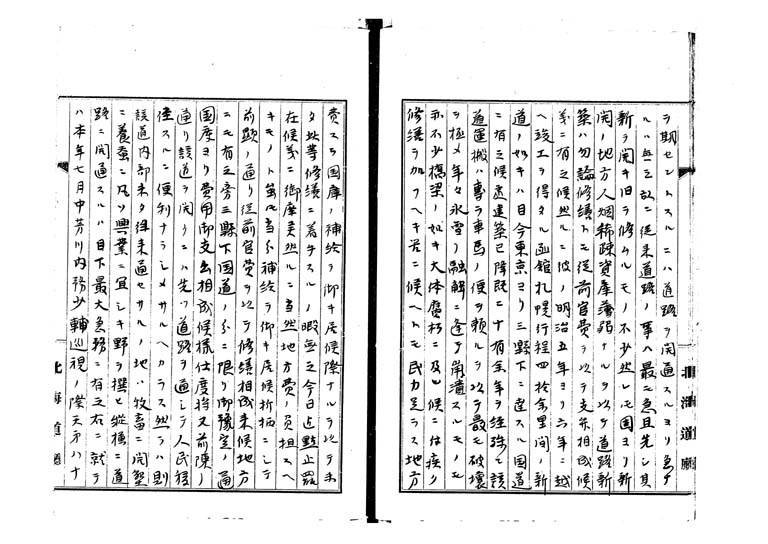 ヲ期セントスルニハ道路ヲ開通スルヨリ急ナ
ルハ無之故ニ従来道路ノ事ハ最モ急且先シ其
新ヲ開キ旧ヲ修ムルモノ不少然レモ固ヨリ新
開ノ地方人烟稀疎資庫薄弱ナルヲ以テ道路新
築ハ勿論修繕トモ従前官費ヲ以テ支弁相成候
義ニ有之候然ルニ彼ノ明治五年ヨリ六年ニ越
ヘ竣工ヲ得タル函館札幌行程四拾余里間ノ新
道ノ如キハ目今東京ヨリ三縣下ニ達スル国道
ニ有之候処建築已降既ニ十有余年ヲ経殊ニ該
道運搬ハ専ラ車馬ノ便ヲ頼ルヲ以テ最モ破壊
ヲ極メ年々氷雪ノ融解ニ逢テ崩潰スルモノモ
亦不少橋梁ノ如キ大体腐朽ニ及ヒ候ニ付疾ク
修繕ヲ加フヘキ筈ニ候ヘトモ民力足ラス地方
費スラ国庫ノ補給ヲ仰キ居候際ナルヲ以テ未
タ此等修繕ニ着手スルノ暇無之今日迄黙止罷
在候義ニ御座候然ルニ当然地方費ノ負担スヘ
キモノト雖モ当分補給ヲ仰キ居候折柄ニシテ
前顕ノ通リ従前官費ヲ以テ修繕相成来候地方
ニモ有之旁三縣下国道ノ分ニ限リ御豫定ノ通
国庫ヨリ費用御支出相成候様仕度将又前陳ノ
通リ該道ヲ開クニハ先ツ道路ヲ通シテ人民移
住スルニ便利ナラシメサルヘカラス然ラハ則
該道内部未タ往来通セサルノ地ハ牧畜ニ開墾
ニ養蚕ニ凡ソ興業ニ宜シキ野ヲ撰ヒ縦横ニ道
路ヲ開通スルハ目下最大急務ニ有之右ニ就テ
ハ本年七月中芳川内務少輔巡視ノ際天第八十
北海道廳
北海道廳